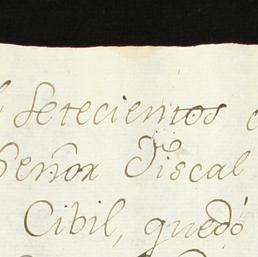 Setecientos
Señor Fiscal
Cibil, quedó